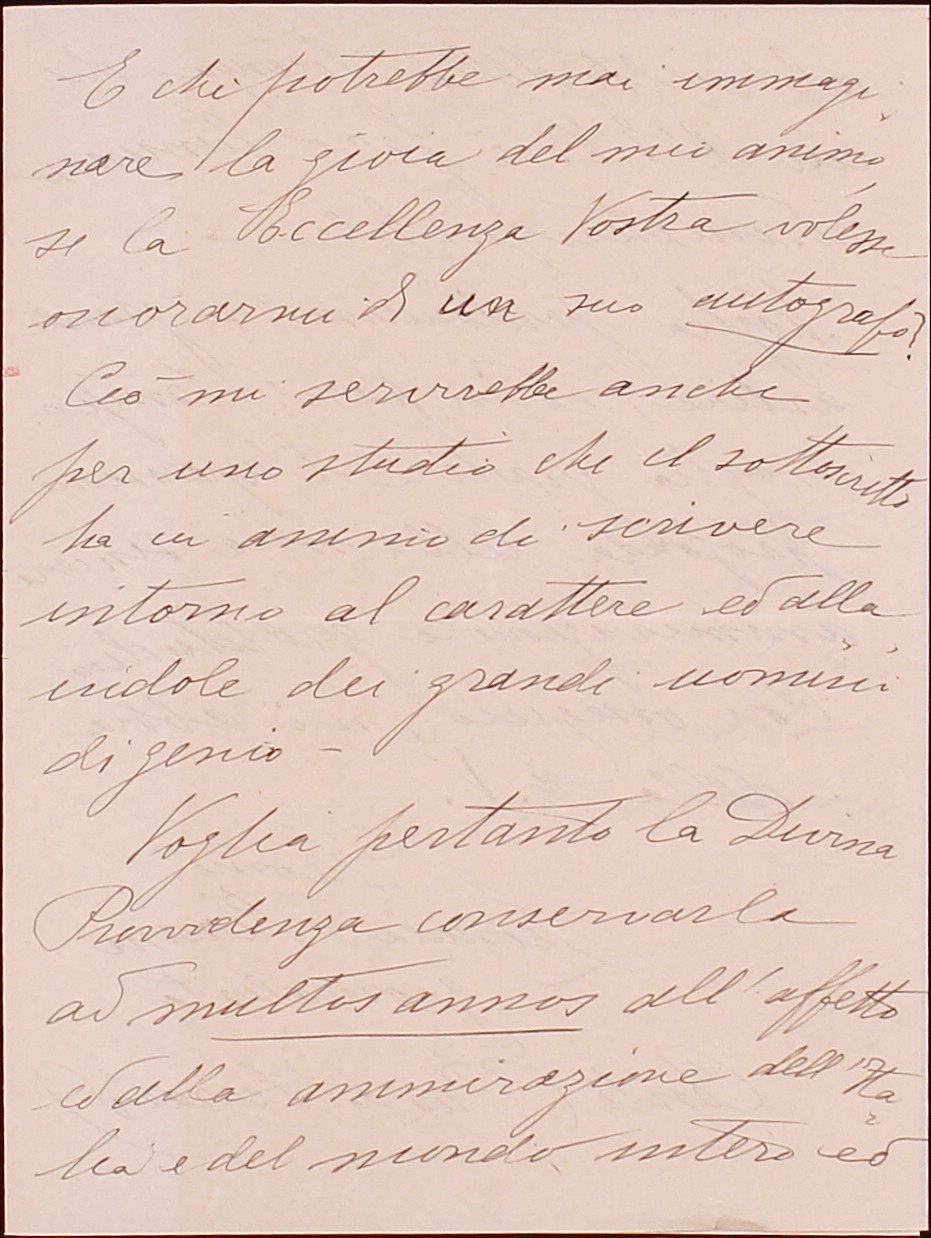 E chi potrebbe mai immagi
nare la gioia del mio animo
se la Eccellenza Vostra volesse
onorarmi di un suo autografo?
Ciò mi servirebbe anche
per uno studio che il sottoscritto
ha in animo di scrivere
intorno al carattere ed alla
indole dei grandi uomini
di genio -
Voglia pertanto la Divina
Provvidenza conservarla
ad multos annos all'affetto
ed alla ammirazione dell'Ita
lia e del mondo intero ed